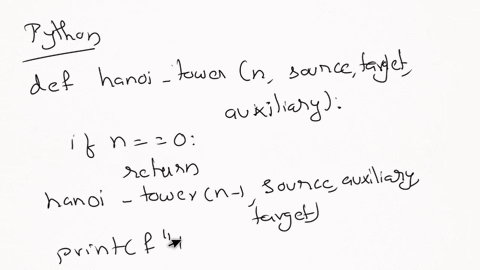 Python
def hanoi_tower (n, source, target,
auxiliary):
if n == 0:
return
hanoi_tower(n-1, source, auxiliary
target)
print(f "